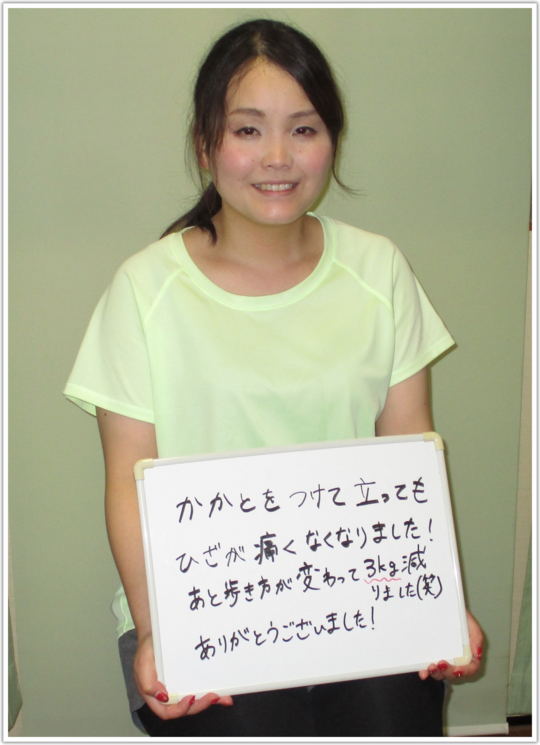 かかとをつけて立っても
ひざが痛くなくなりました!
あと歩き方が変わって3kg減
りました(笑)
ありがとうございました!